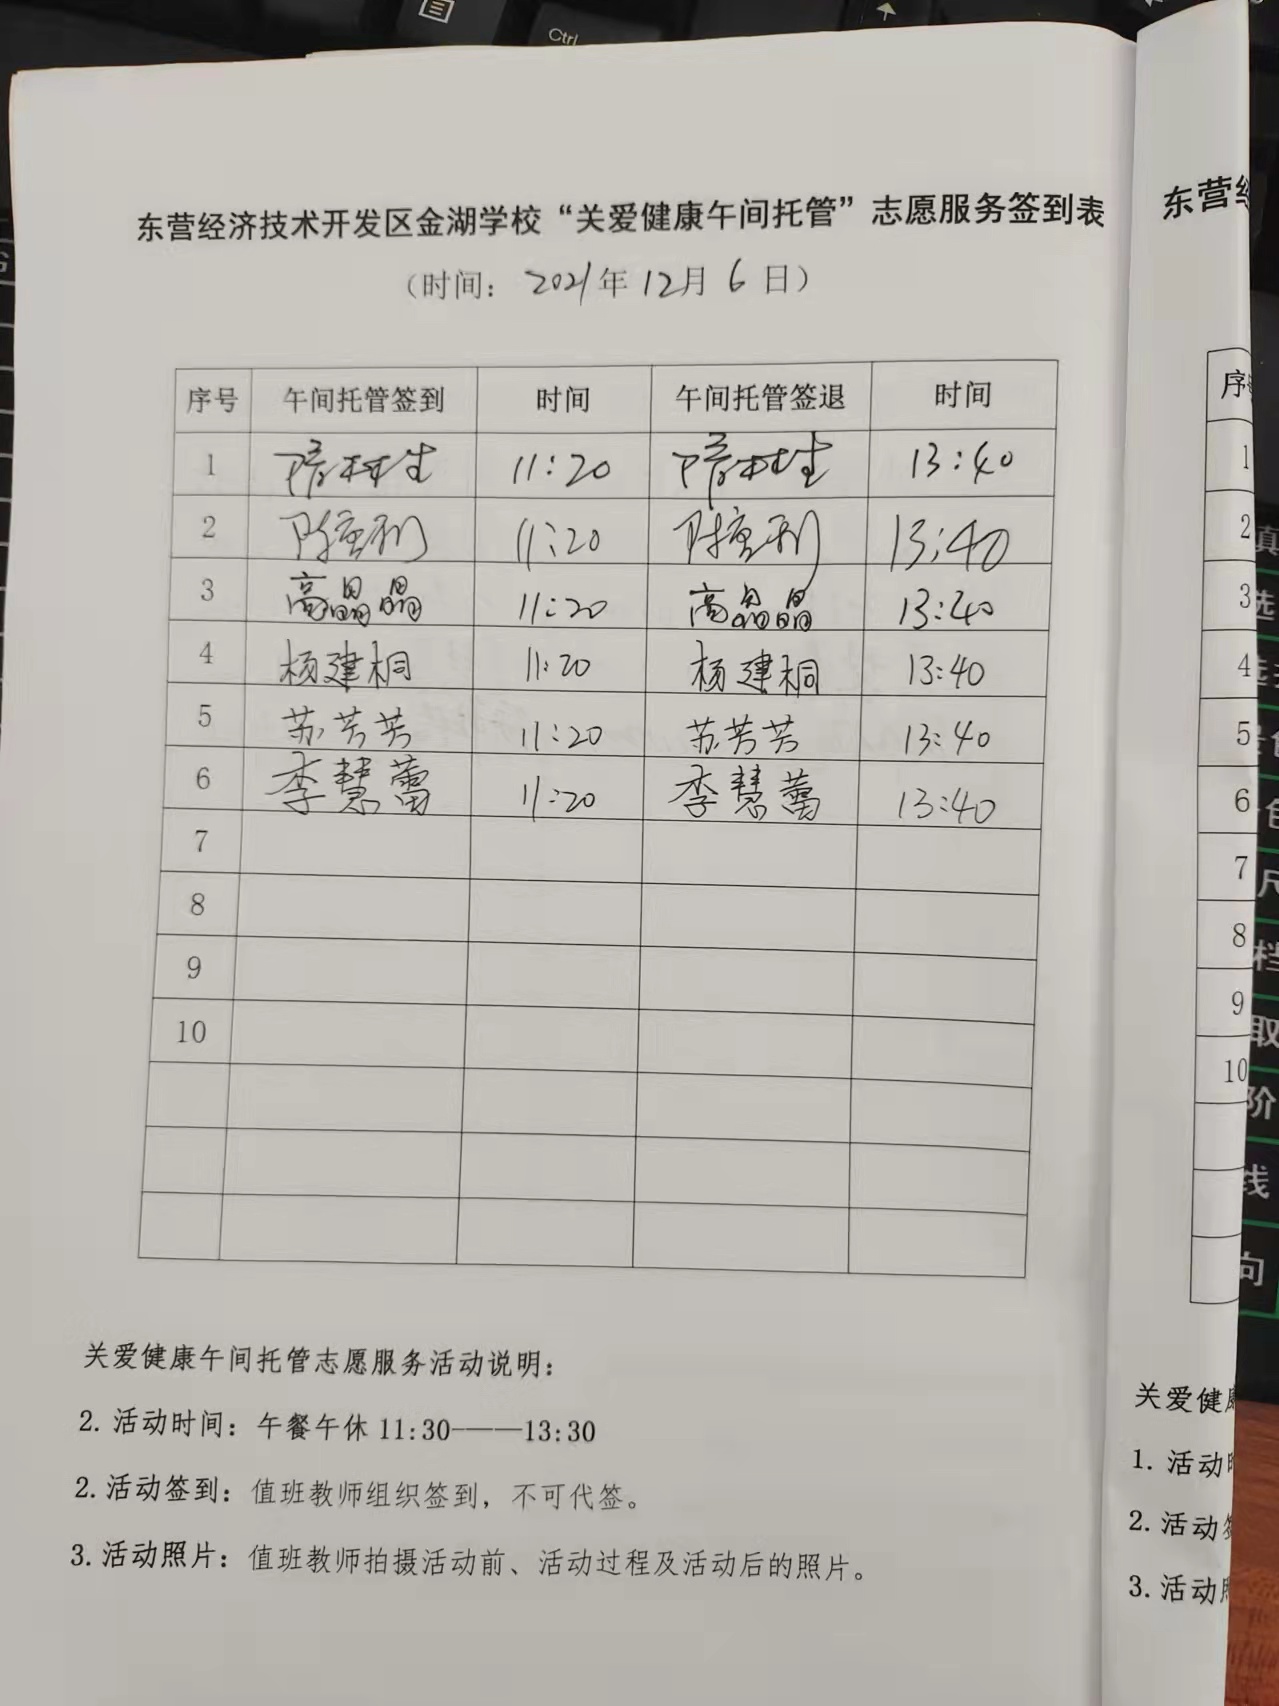 东营经济技术开发区金湖学校“关爱健康午间托管”志愿服务签到表
（时间：2021年12月6日）
序号 午间托管签到 时间 午间托管签退 时间
1 11:20 13:40
2 陈重利 11:20 陈重利 13:40
3 高晶晶 11:20 高晶晶 13:40
4 杨建桐 11:20 杨建桐 13:40
5 苏芳芳 11:20 苏芳芳 13:40
6 李慧蕾 11:20 李慧蕾 13:40
7
8
9
10
关爱健康午间托管志愿服务活动说明：
2.活动时间：午餐午休11:30——13:30
2.活动签到：值班教师组织签到，不可代签。
3.活动照片：值班教师拍摄活动前、活动过程及活动后的照片。
东营
序
1
2
3
4
5
6
7
8
9
10
关爱健
1.活动
2.活动
3.活动
Ctrl
选
档
取
阶
线
向